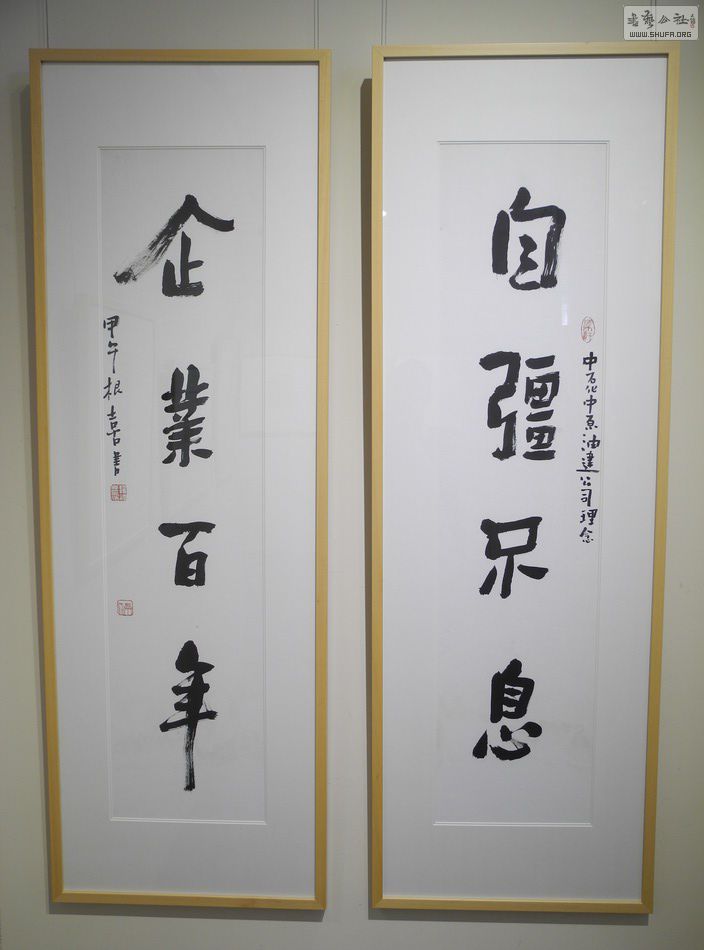 書藝公社
WWW.SHUFA.ORG
自彊不息
中石化中原油建公司理念
企業百年
甲午根喜書